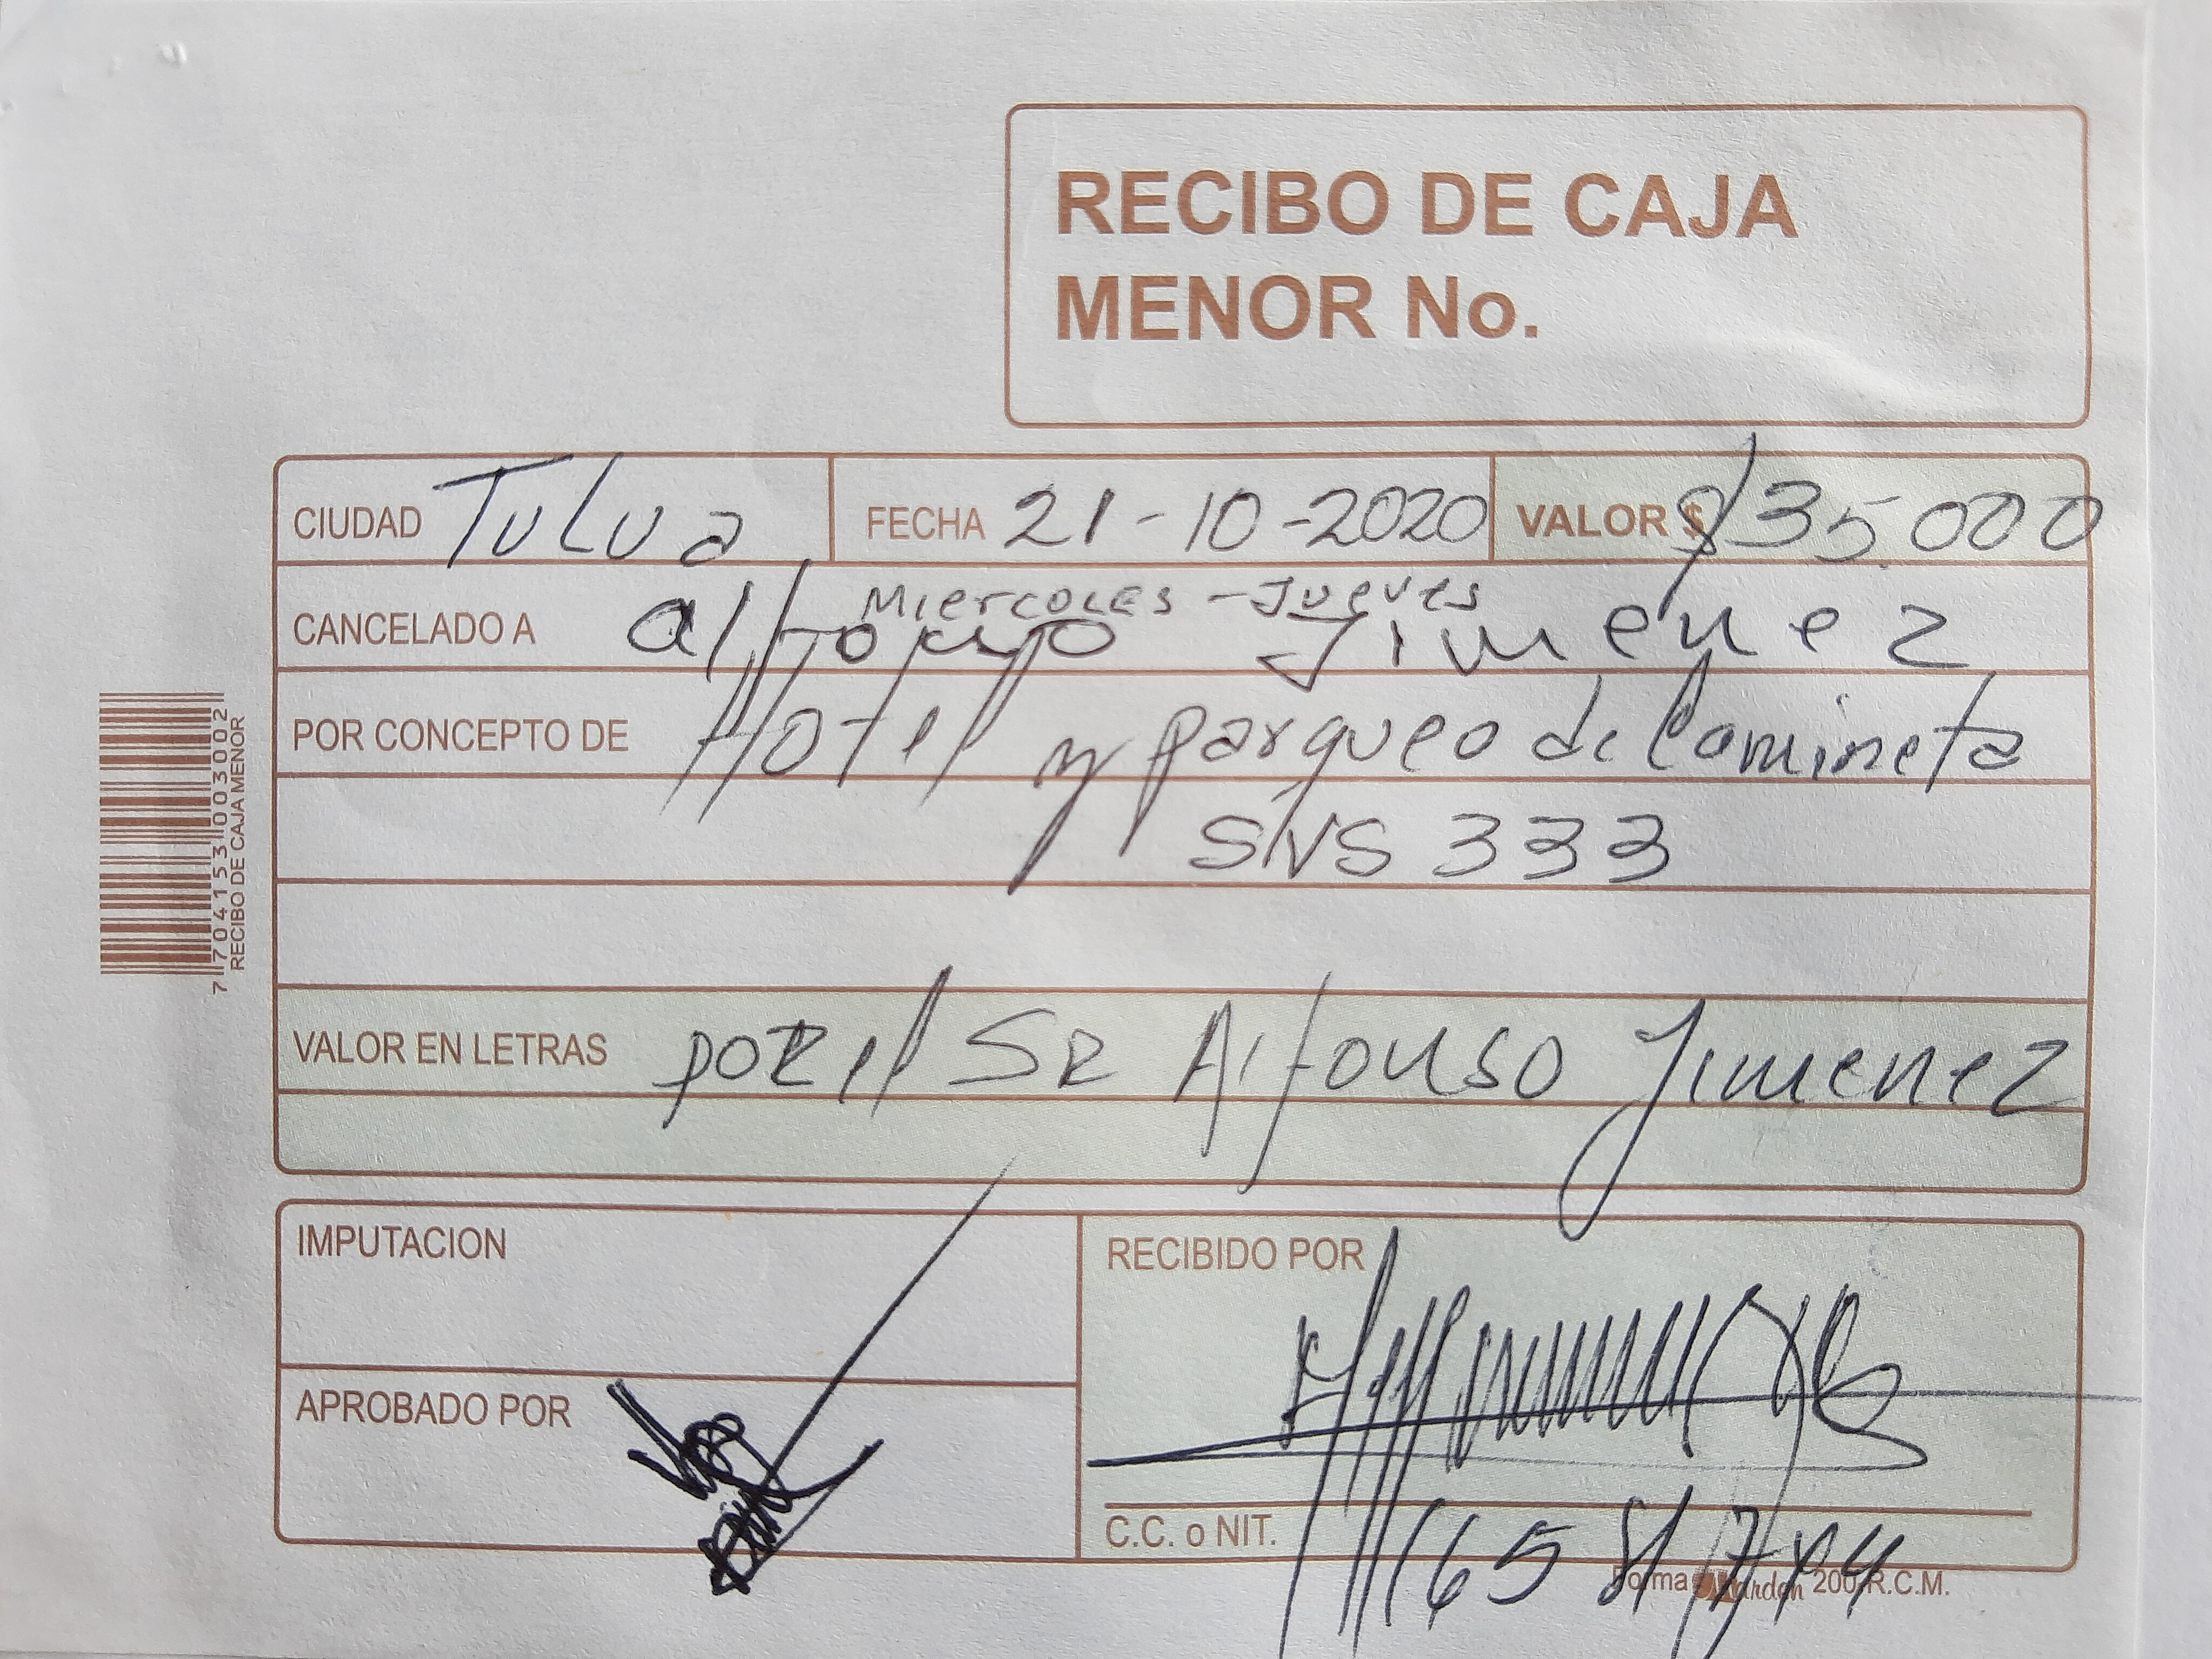 RECIBO DE CAJA
MENOR No.
CIUDAD Tulua FECHA 21-10-2020 VALOR $ $35.000
Miercoles - Jueves
CANCELADO A Jimenez
POR CONCEPTO DE Hotel y parqueo de Camineta
SNS 333
VALOR EN LETRAS por el SR Alfonso Jimenez
IMPUTACION
RECIBIDO POR
APROBADO POR
C.C. o NIT.
Forma 200 R.C.M.
7704153003002
RECIBO DE CAJA MENOR